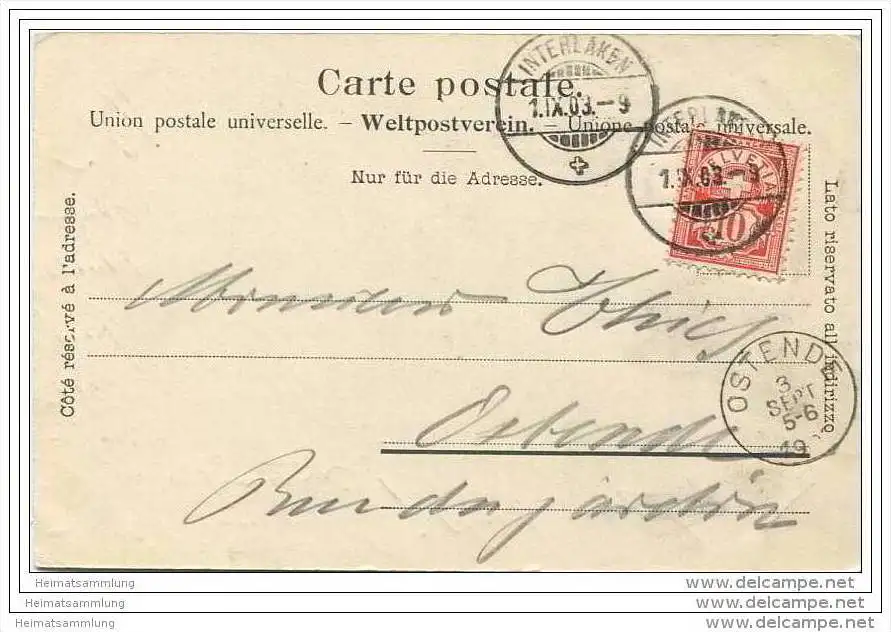 Carte postale.
Union postale universelle. – Weltpostverein. – Unione postale universale.
Nur für die Adresse.
Côté réservé à l'adresse.
Lato riservato all'indirizzo.
INTERLAKEN
1.IX.03.–9
INTERLAK
1.IX.03.–9
HELVETIA
10
Monsieur Thief
OSTENDE
3
SEPT
5-6
19
Ostende
Rue du jardin
Heimatsammlung
Heimatsammlung
Heimatsammlung
www.delcampe.net
www.delcampe.net
www.delcampe.net